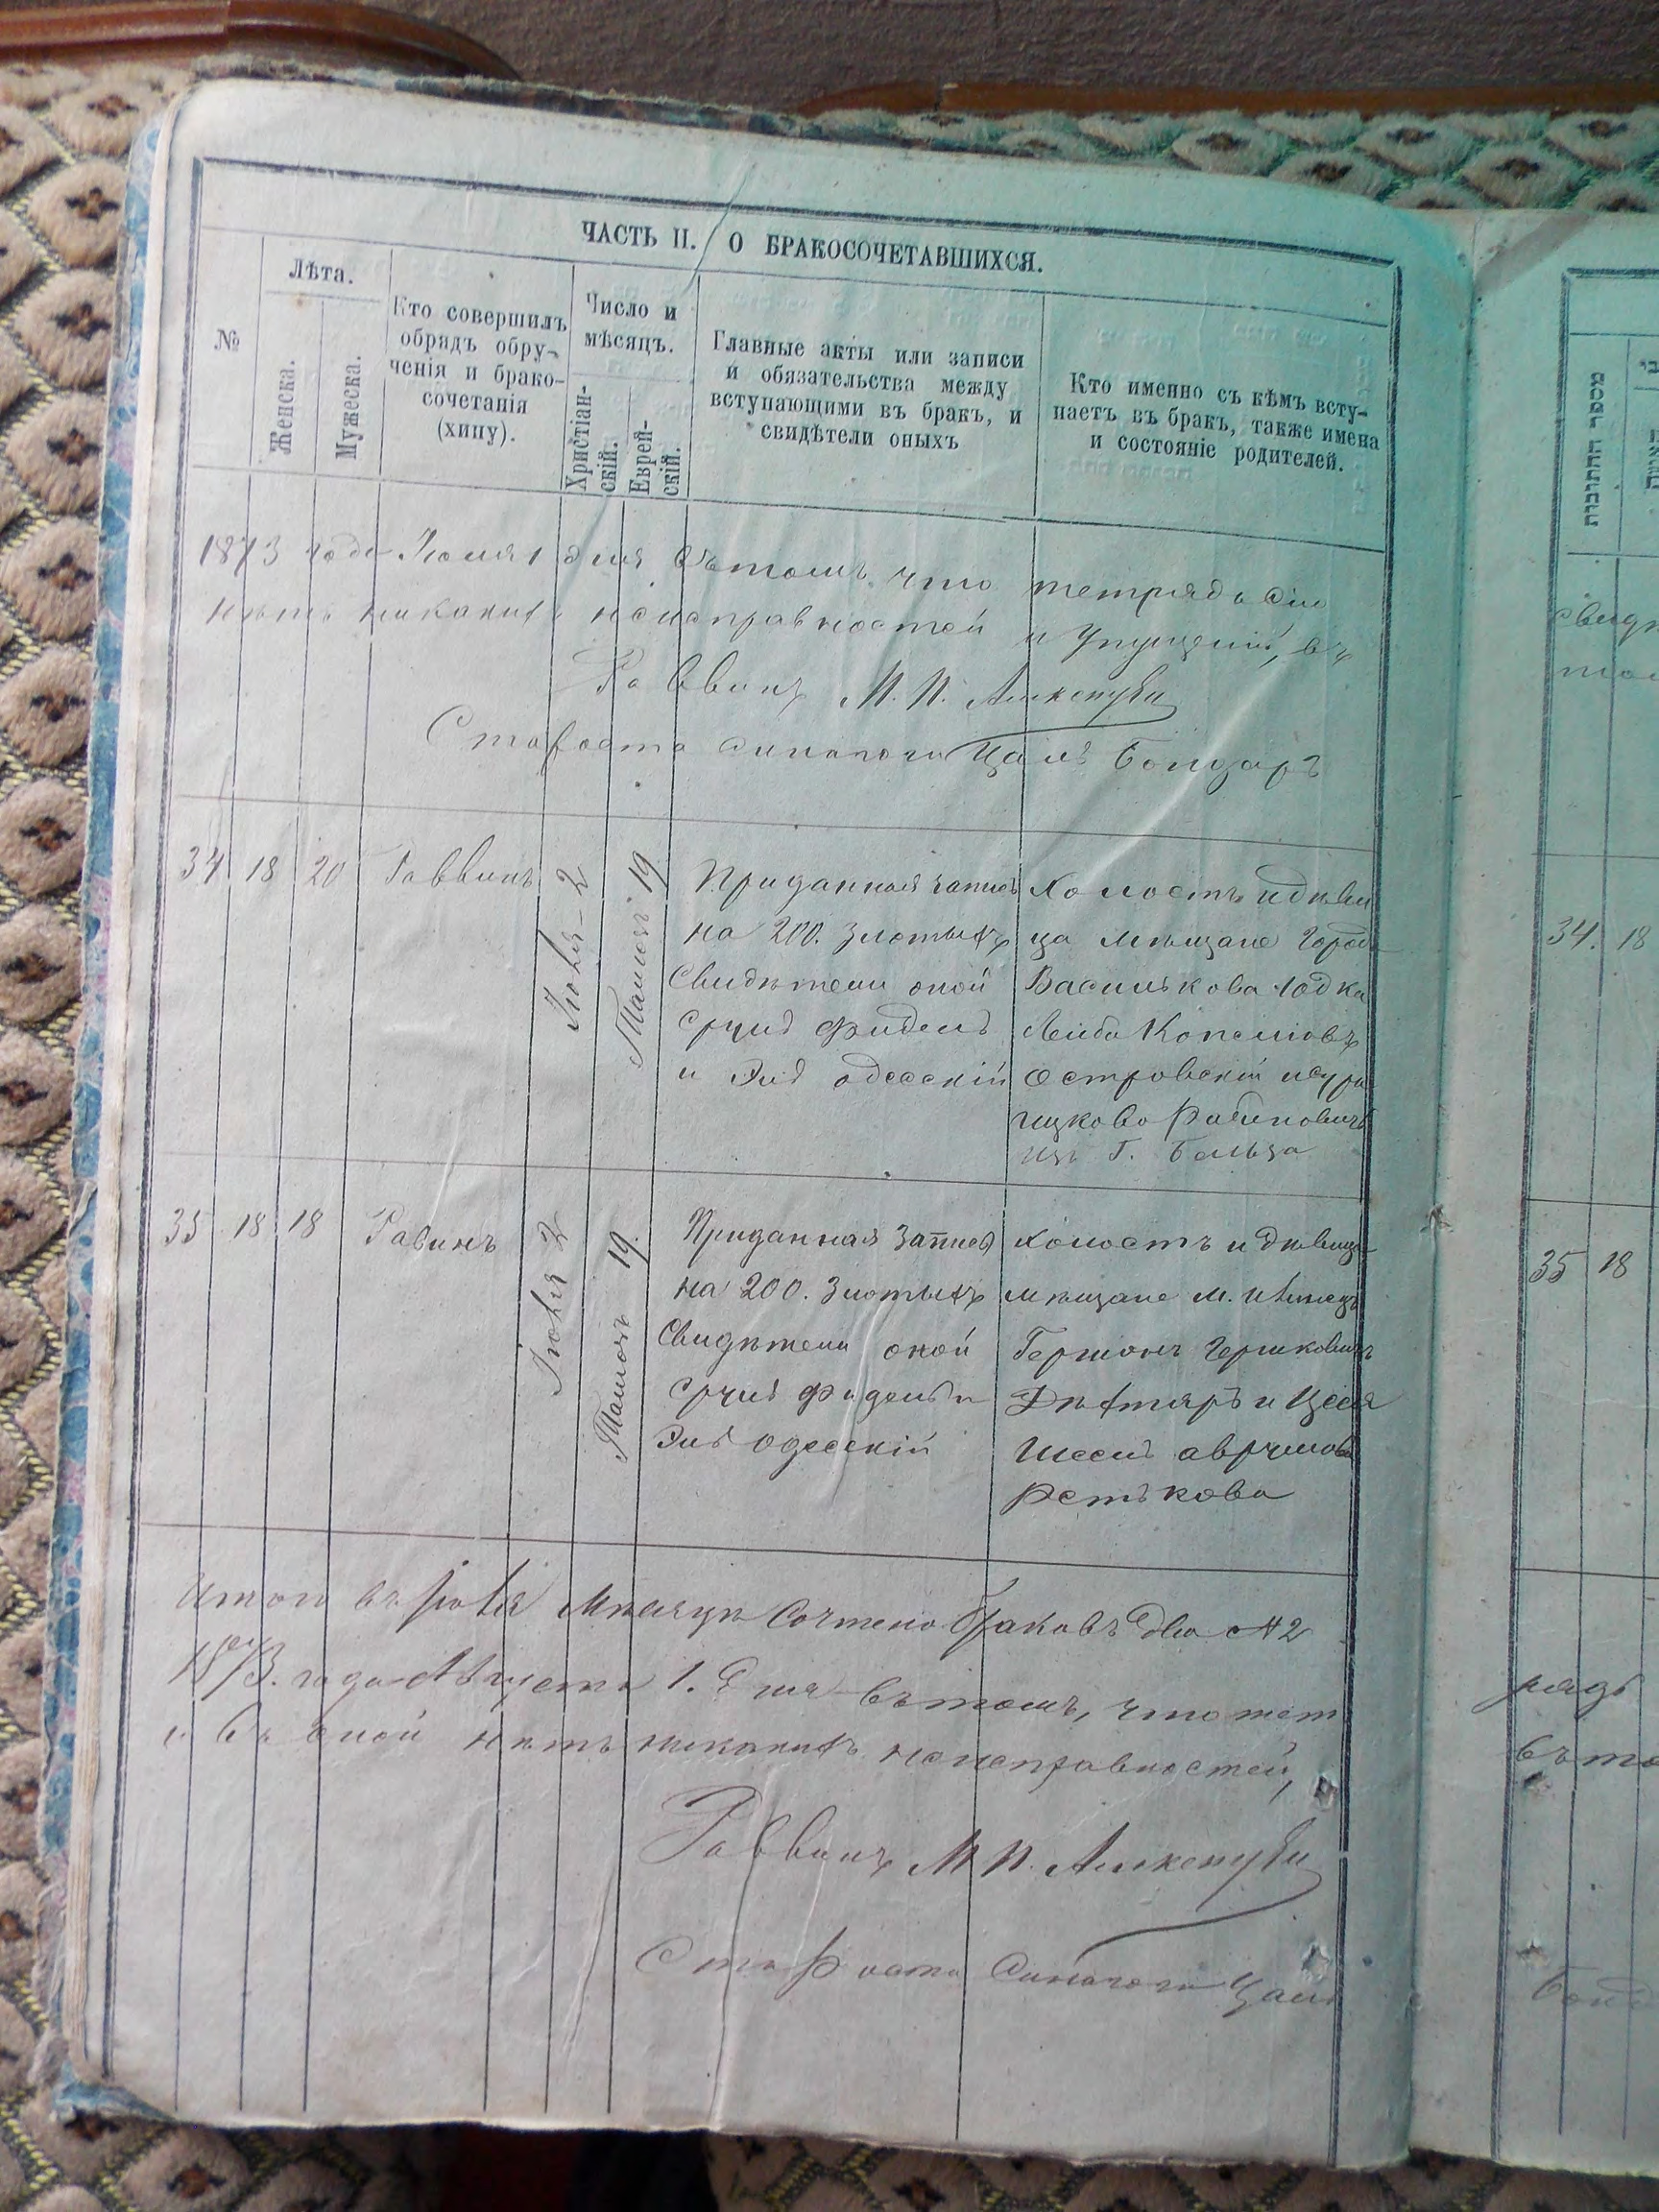 ЧАСТЬ II. О БРАКОСОЧЕТАВШИХСЯ.
№
Лѣта.
Женска.
Мужеска.
Кто совершилъ
обрядъ обру-
ченія и брако-
сочетанія
(хипу).
Число и
мѣсяцъ.
Христіан-
скій.
Еврей-
скій.
Главные акты или записи
и обязательства между
вступающими въ бракъ, и
свидѣтели оныхъ
Кто именно съ кѣмъ всту-
паетъ въ бракъ, также имена
и состояніе родителей.
1873 года 1 дня въ томъ что тетрядь сія
нѣтъ никакихъ неисправностей и упущеній, въ
Раввинъ М. П.
Староста синагоги Цаль Бондарь
34 18 20 Раввинъ
Іюля 2
Тамозъ 19
Приданная запись
на 200. злотыхъ
Свидѣтели оной
Сруль Фидель
и Эля одесскій
Холостъ и дѣви
ца мѣщане Города
Василькова Юдка
Лейба
Островскій и Сура
Ицкова Рабиновичъ
изъ Г. Бельца
35 18 18 Равинъ
Іюля 2
Тамозъ 19.
Приданная запись
на 200. злотыхъ
Свидѣтели оной
Сруль Фидель и
Эля Одесскій
холостъ и дѣвица
мѣщане м.
Гершонъ Гершковичъ
Дѣхтяръ и
Итого въ Іюля Мѣсяцѣ Сочтено браковъ два № 2
1873. года Августа 1. Дня въ томъ, что тет
и въ оной нѣтъ никакихъ неисправностей,
Раввинъ М П.
Староста Синагоги Цаль
מספר החתונות
34. 18
35 18
рядь
въ то